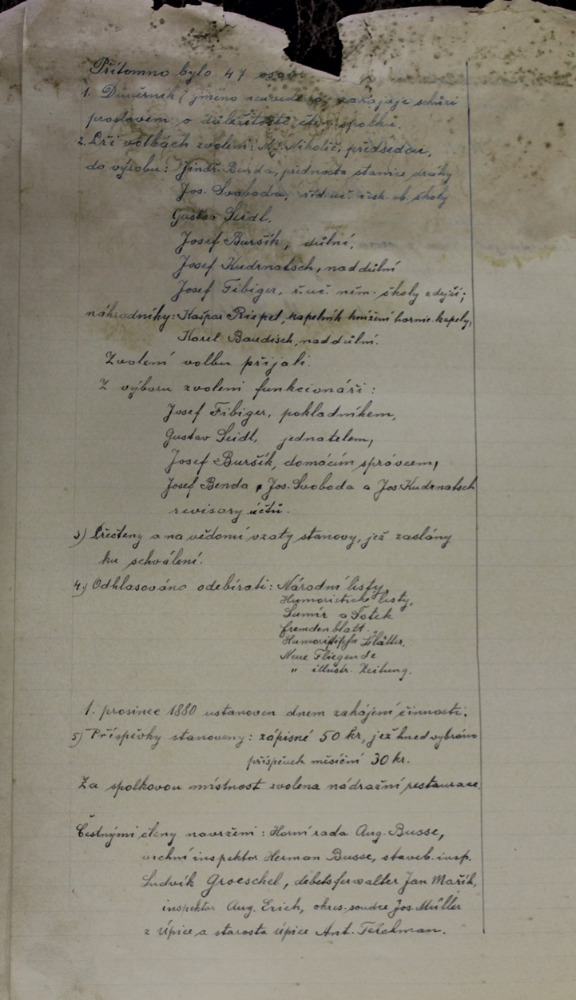 Přítomno bylo 47 osob.
1. Důvěrník (jméno neuvedeno) zahajuje schůzi
proslovem o důležitosti spolku.
2. Při volbách zvoleni: Nikolič, předsedou,
do výboru: Jindř. Burda, přednosta stanice dráhy
Jos. Svoboda, říd. uč. ob. školy
Gustav Seidl,
Josef Buršík, důlní,
Josef Kudrnatsch, naddůlní
Josef Fibiger, ř. uč. něm. školy zdejší;
náhradníky: Kašpar Riepel, kapelník knížecí hornic. kapely,
Karel Baudisch, naddůlní.
Zvolení volbu přijali.
Z výboru zvoleni funkcionáři:
Josef Fibiger, pokladníkem,
Gustav Seidl, jednatelem,
Josef Buršík, domácím správcem,
Josef Benda, Jos. Svoboda a Jos. Kudrnatsch
revisory účtů.
3) Přečteny a na vědomí vzaty stanovy, jež zaslány
ku schválení.
4.) Odhlasováno odebírati: Národní listy,
Humoristické listy,
Lumír a Sotek
Fremdenblatt
Humoristische Blätter,
Neue Fliegende
" illustr. Zeitung.
1. prosinec 1880 ustanoven dnem zahájení činnosti.
5) Příspěvky stanoveny: zápisné 50 kr, jež hned vybráno
příspěvek měsíční 30 kr.
Za spolkovou místnost zvolena nádražní restaurace.
Čestnými členy navrženi: Horní rada Aug. Busse,
vrchní inspektor Herman Busse, staveb. insp.
Ludvík Groeschel, debetsferwalter Jan Mařík,
inspektor Aug. Erich, okres. soudce Jos. Müller
z Úpice, a starosta úpice Ant.